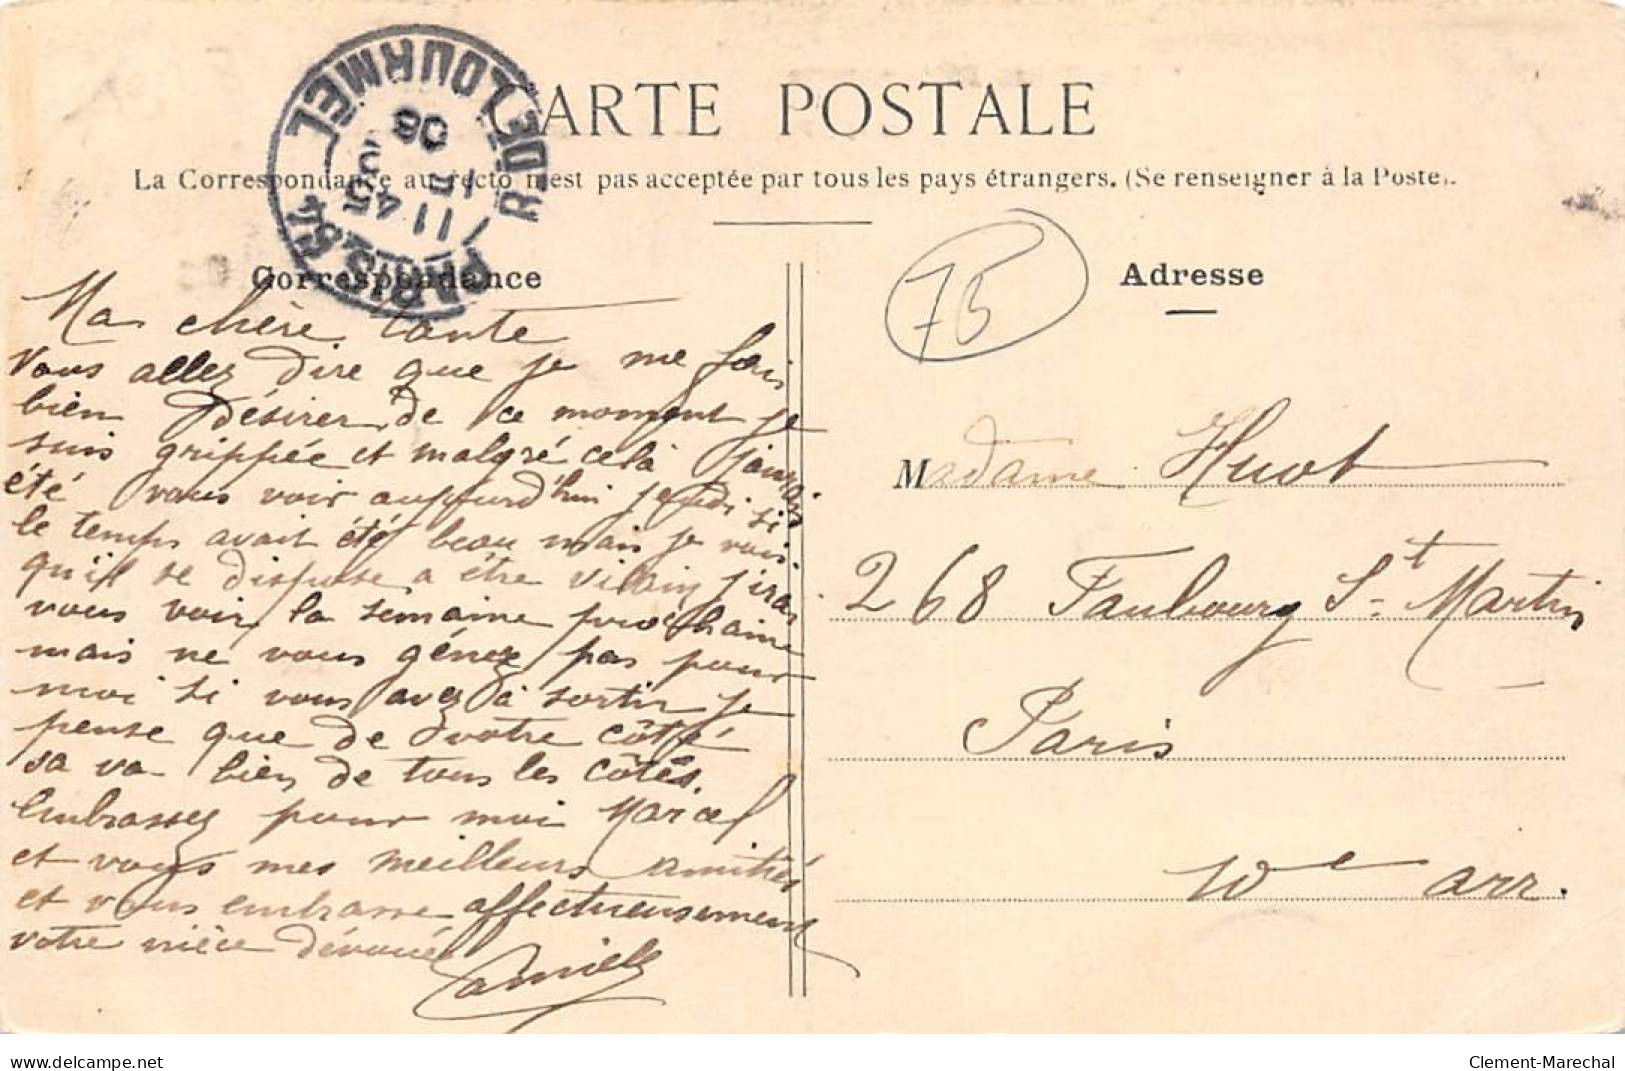 CARTE POSTALE
La Correspondance au recto n'est pas acceptée par tous les pays étrangers. (Se renseigner à la Poste).
PARIS 54
R. DE LOURMEL
11
4
06
Correspondance
Ma chère tante
Vous allez dire que je me fais
bien désirer, de ce moment je
suis grippée et malgré celà j'aurais
été vous voir aujourd'hui jeudi si
le temps avait été beau mais je vois
qu'il se dispose a être vilain j'irai
vous voir la semaine prochaine
mais ne vous génez pas pour
moi si vous avez à sortir je
pense que de votre côté
sa va bien de tous les côtés.
Embrassez pour moi Marcel
et vous mes meilleurs amitiés
et vous embrasse affectueusement
votre nièce dévouée
75
Adresse
Madame Huot
268 Faubourg St Martin
Paris
10e arr.
delcampe.net
Clement-Marechal